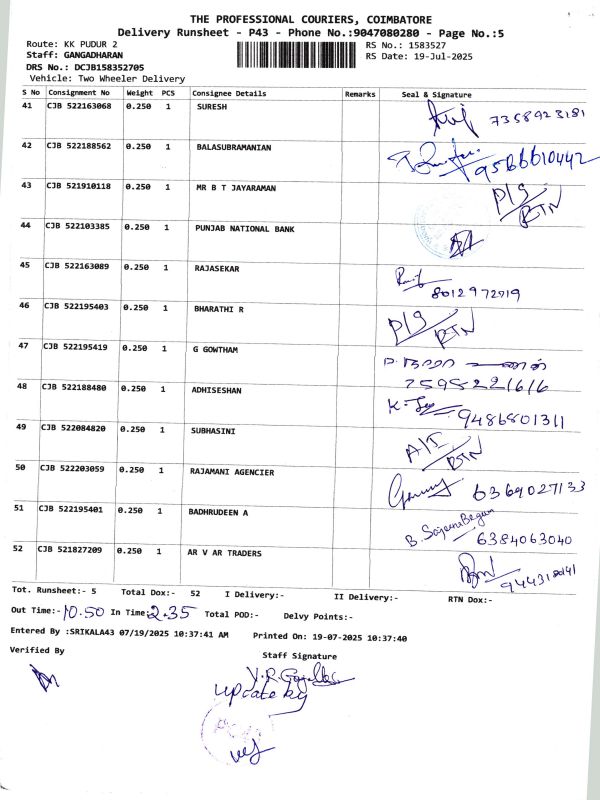 THE PROFESSIONAL COURIERS, COIMBATORE
Delivery Runsheet - P43 - Phone No.:9047080280 - Page No.:5
Route: KK PUDUR 2 RS No.: 1583527
Staff: GANGADHARAN RS Date: 19-Jul-2025
DRS No.: DCJB158352705
Vehicle: Two Wheeler Delivery
S No Consignment No Weight PCS Consignee Details Remarks Seal & Signature
41 CJB 522163068 0.250 1 SURESH 7358923181
42 CJB 522188562 0.250 1 BALASUBRAMANIAN 9566610442
43 CJB 521910118 0.250 1 MR B T JAYARAMAN P/S RTN
44 CJB 522103385 0.250 1 PUNJAB NATIONAL BANK
45 CJB 522163089 0.250 1 RAJASEKAR 8012972719
46 CJB 522195403 0.250 1 BHARATHI R P/S RTN
47 CJB 522195419 0.250 1 G GOWTHAM
7595221616
48 CJB 522188480 0.250 1 ADHISESHAN 9486801311
49 CJB 522084820 0.250 1 SUBHASINI RTN
50 CJB 522203059 0.250 1 RAJAMANI AGENCIER 6369027133
51 CJB 522195401 0.250 1 BADHRUDEEN A B. Begum 6384063040
52 CJB 521827209 0.250 1 AR V AR TRADERS
Tot. Runsheet:- 5 Total Dox:- 52 I Delivery:- II Delivery:- RTN Dox:-
Out Time:- 10.50 In Time: 2.35 Total POD:- Delvy Points:-
Entered By :SRIKALA43 07/19/2025 10:37:41 AM Printed On: 19-07-2025 10:37:40
Verified By Staff Signature
update by